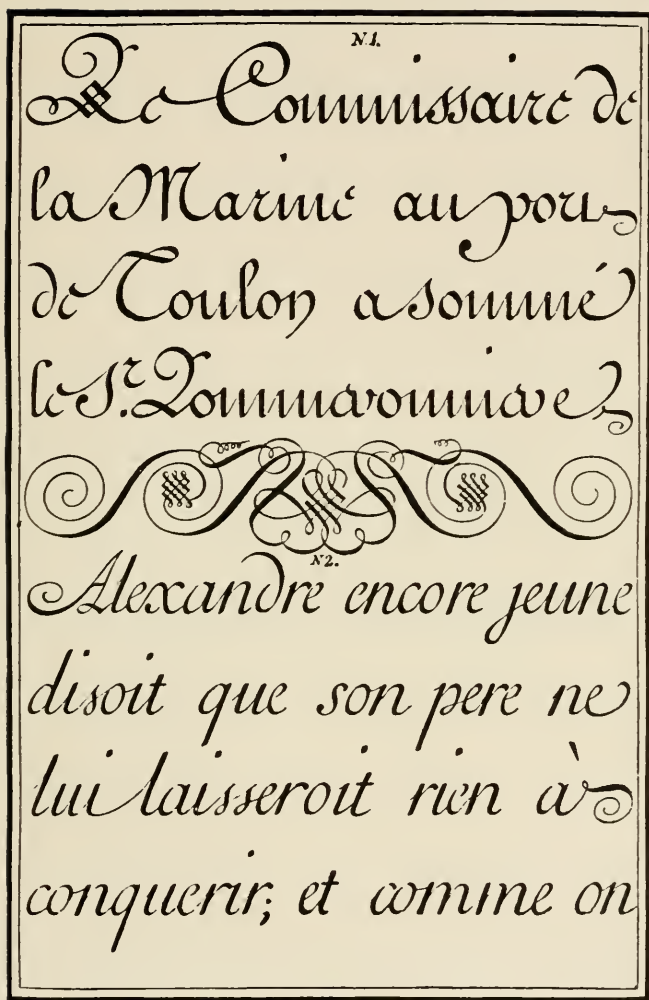 N.1.
Le Commissaire de
la Marine au port
de Toulon a sommé
le S.r
N2.
Alexandre encore jeune
disoit que son pere ne
lui laisseroit rien à
conquerir; et comme on